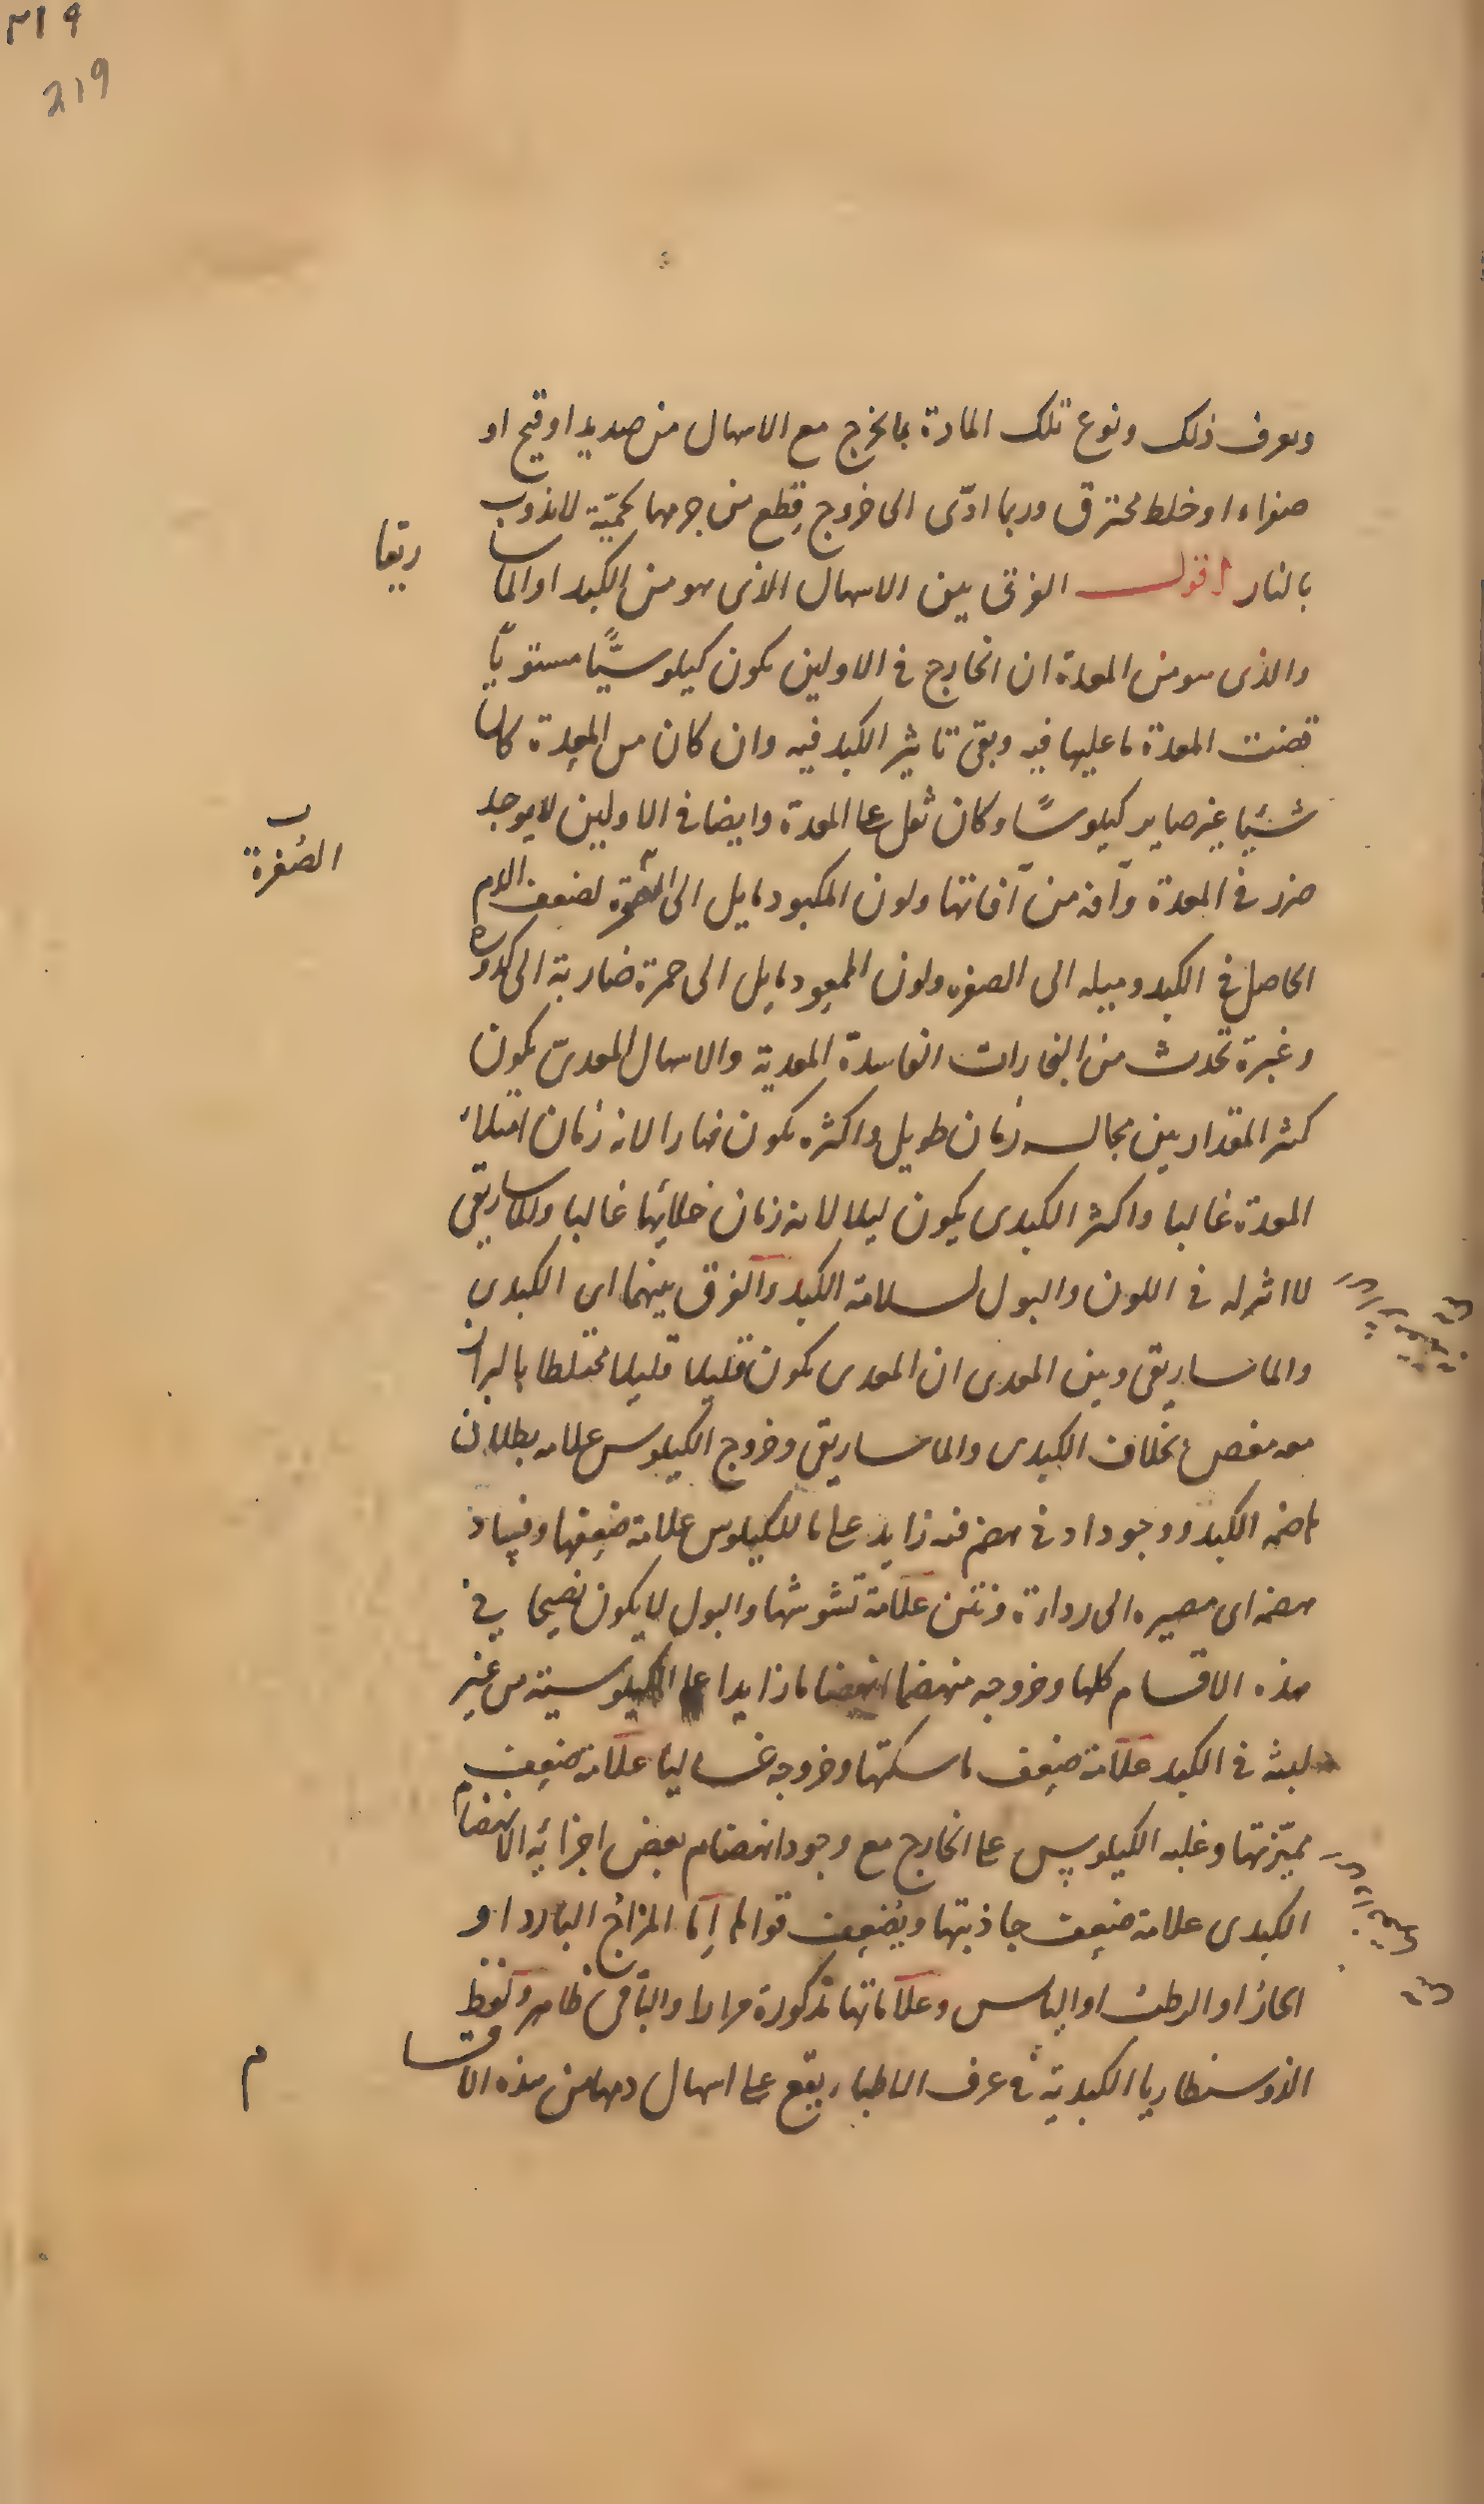 ٢١٩
219
ويعرف ذلك ونوع تلك المادة بما يخرج مع الاسهال من صديد او قيح او
صفراء او خلط محترق وربما ادّى الى خروج قِطع من جرمها لحميّة لا تذوب
بالنار اقول الفرق بين الاسهال الذى هو من الكبد او الماسا
ريقا
والذى هو من المعدة ان الخارج فى الاولين يكون كيلوسيًّا مستويًا
قضت المعدة ما عليها فيه وبقى تاثير الكبد فيه وان كان من المعدة كان
شيئا غير صاير كيلوسًا وكان ثقل على المعدة وايضا فى الاولين لا يوجد
ضرر فى المعدة وآفة من آفاتها ولون المكبود مايل الى لضعف الدم
الصُفرة
الحاصل فى الكبد وميله الى الصفره ولون الممعود مايل الى حمرة ضاربة الى كدورة
وغبرة تحدث من البخارات الفاسدة المعدية والاسهال المعدىّ يكون
كثير المقدار بين مجالسه زمان طويل واكثره يكون نهارا لانه زمان امتلاء
المعدة غالبا واكثر الكبدى يكون ليلا لانه زمان خلائها غالبا والماساريقى
لا اثر له فى اللون والبول لسلامة الكبد والفرق بينهما اى الكبدى
والماساريقى وبين المعدى ان المعدى يكون قليلا قليلا مختلطا بالبراز
معه مغص بخلاف الكبدى والماساريقى وخروج الكيلوس علامه بطلان
هاضمه الكبد ووجود ادنى هضم فيه زايد على ما للكيلوس علامة ضعفها وفساد
هضمه اى مصيره الى رداءة ونتن علامة تشوشها والبول لا يكون نضيجا فى
هذه الاقسام كلها وخروجه منهضما انهضاما زايدا على الكيلوسية من غير
لبث فى الكبد علامة ضعف ماسكتها وخروجه غساليا علامة ضعف
مميّزتها وغلبه الكيلوس على الخارج مع وجود انهضام بعض اجزائه الانهضام
الكبدى علامة ضعف جاذبتها ويُضعِف قواها إمّا المزاجُ البارد او
الحارُّ او الرطبُ او اليابس وعلاماتها مذكورة مرارا والباقى ظاهر ولفظ
الذوسنطاريا الكبدية فى عرف الاطباء يقع على اسهال دمها من هذه الاقسا
م